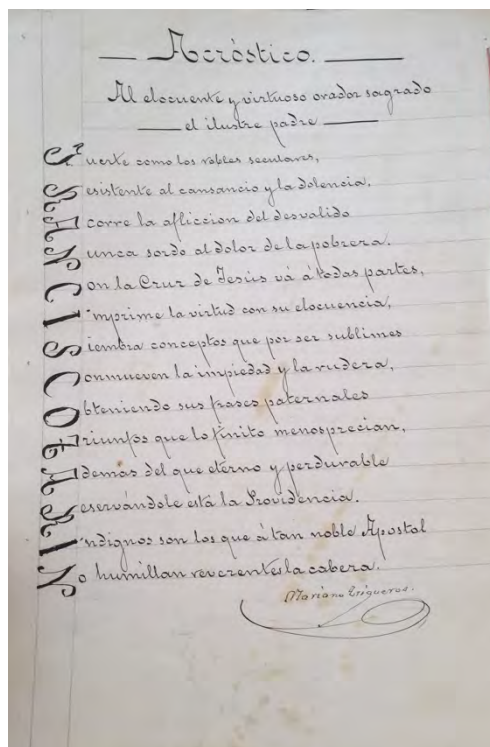 Acróstico.
Al elocuente y virtuoso orador sagrado
el ilustre padre
Fuerte como los robles seculares,
Resistente al cansancio y la dolencia,
Acorre la afliccion del desvalido
Nunca sordo al dolor de la pobreza.
Con la Cruz de Jesús vá á todas partes,
Imprime la virtud con su elocuencia,
Siembra conceptos que por ser sublimes
Conmueven la impiedad y la rudeza,
Obteniendo sus frases paternales
Triunfos que lo finito menosprecian,
Ademas del que eterno y perdurable
Reservándole está la Providencia.
Indignos son los que á tan noble Apostol
No humillan reverentes la cabeza.
Mariano Trigueros.